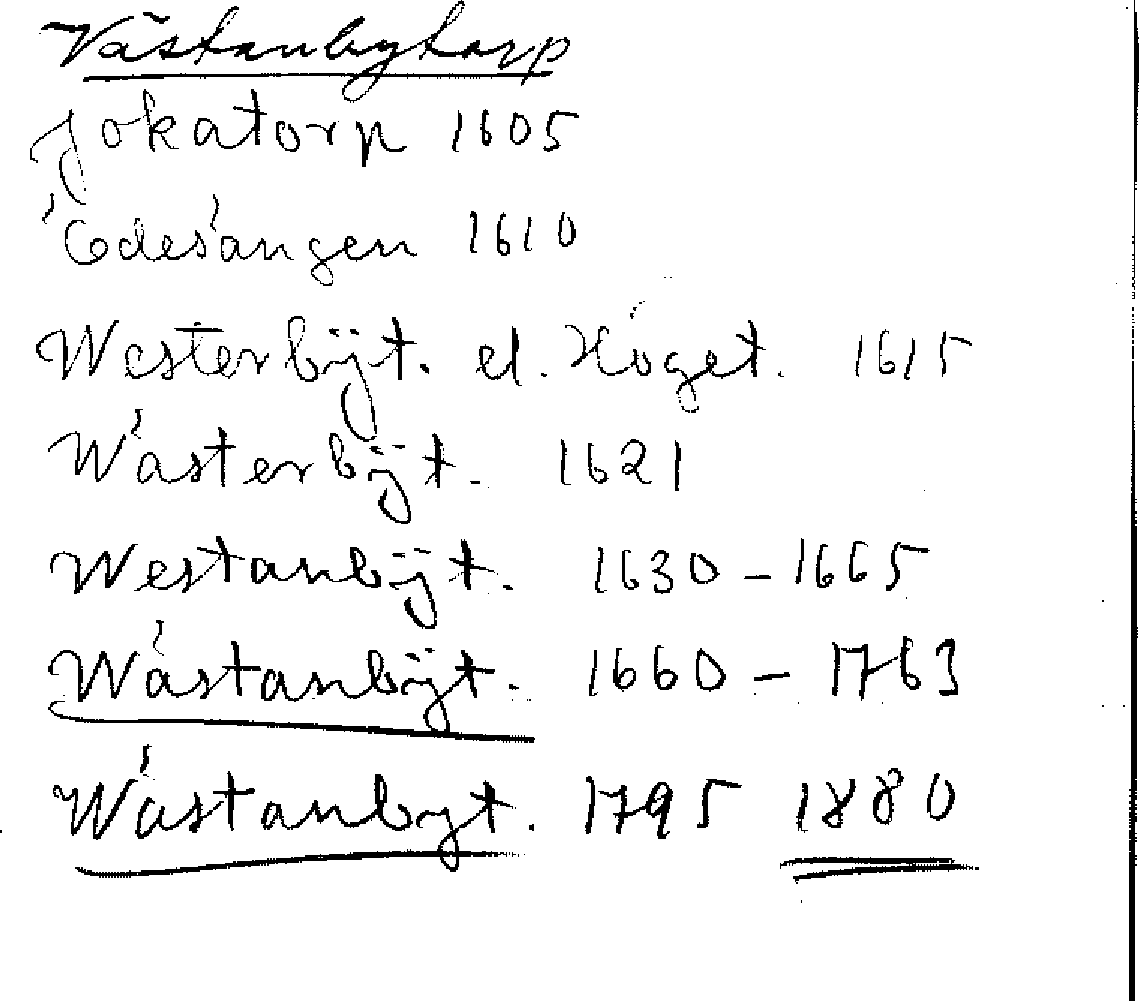 Västanbytorp
Jokatorp 1605
Ödesängen 1610
Westerbÿt. el. Höget. 1615
Wästerbÿt. 1621
Westanbÿt. 1630 - 1665
Wästanbÿt. 1660 - 1763
Wästanbyt. 1795 1880